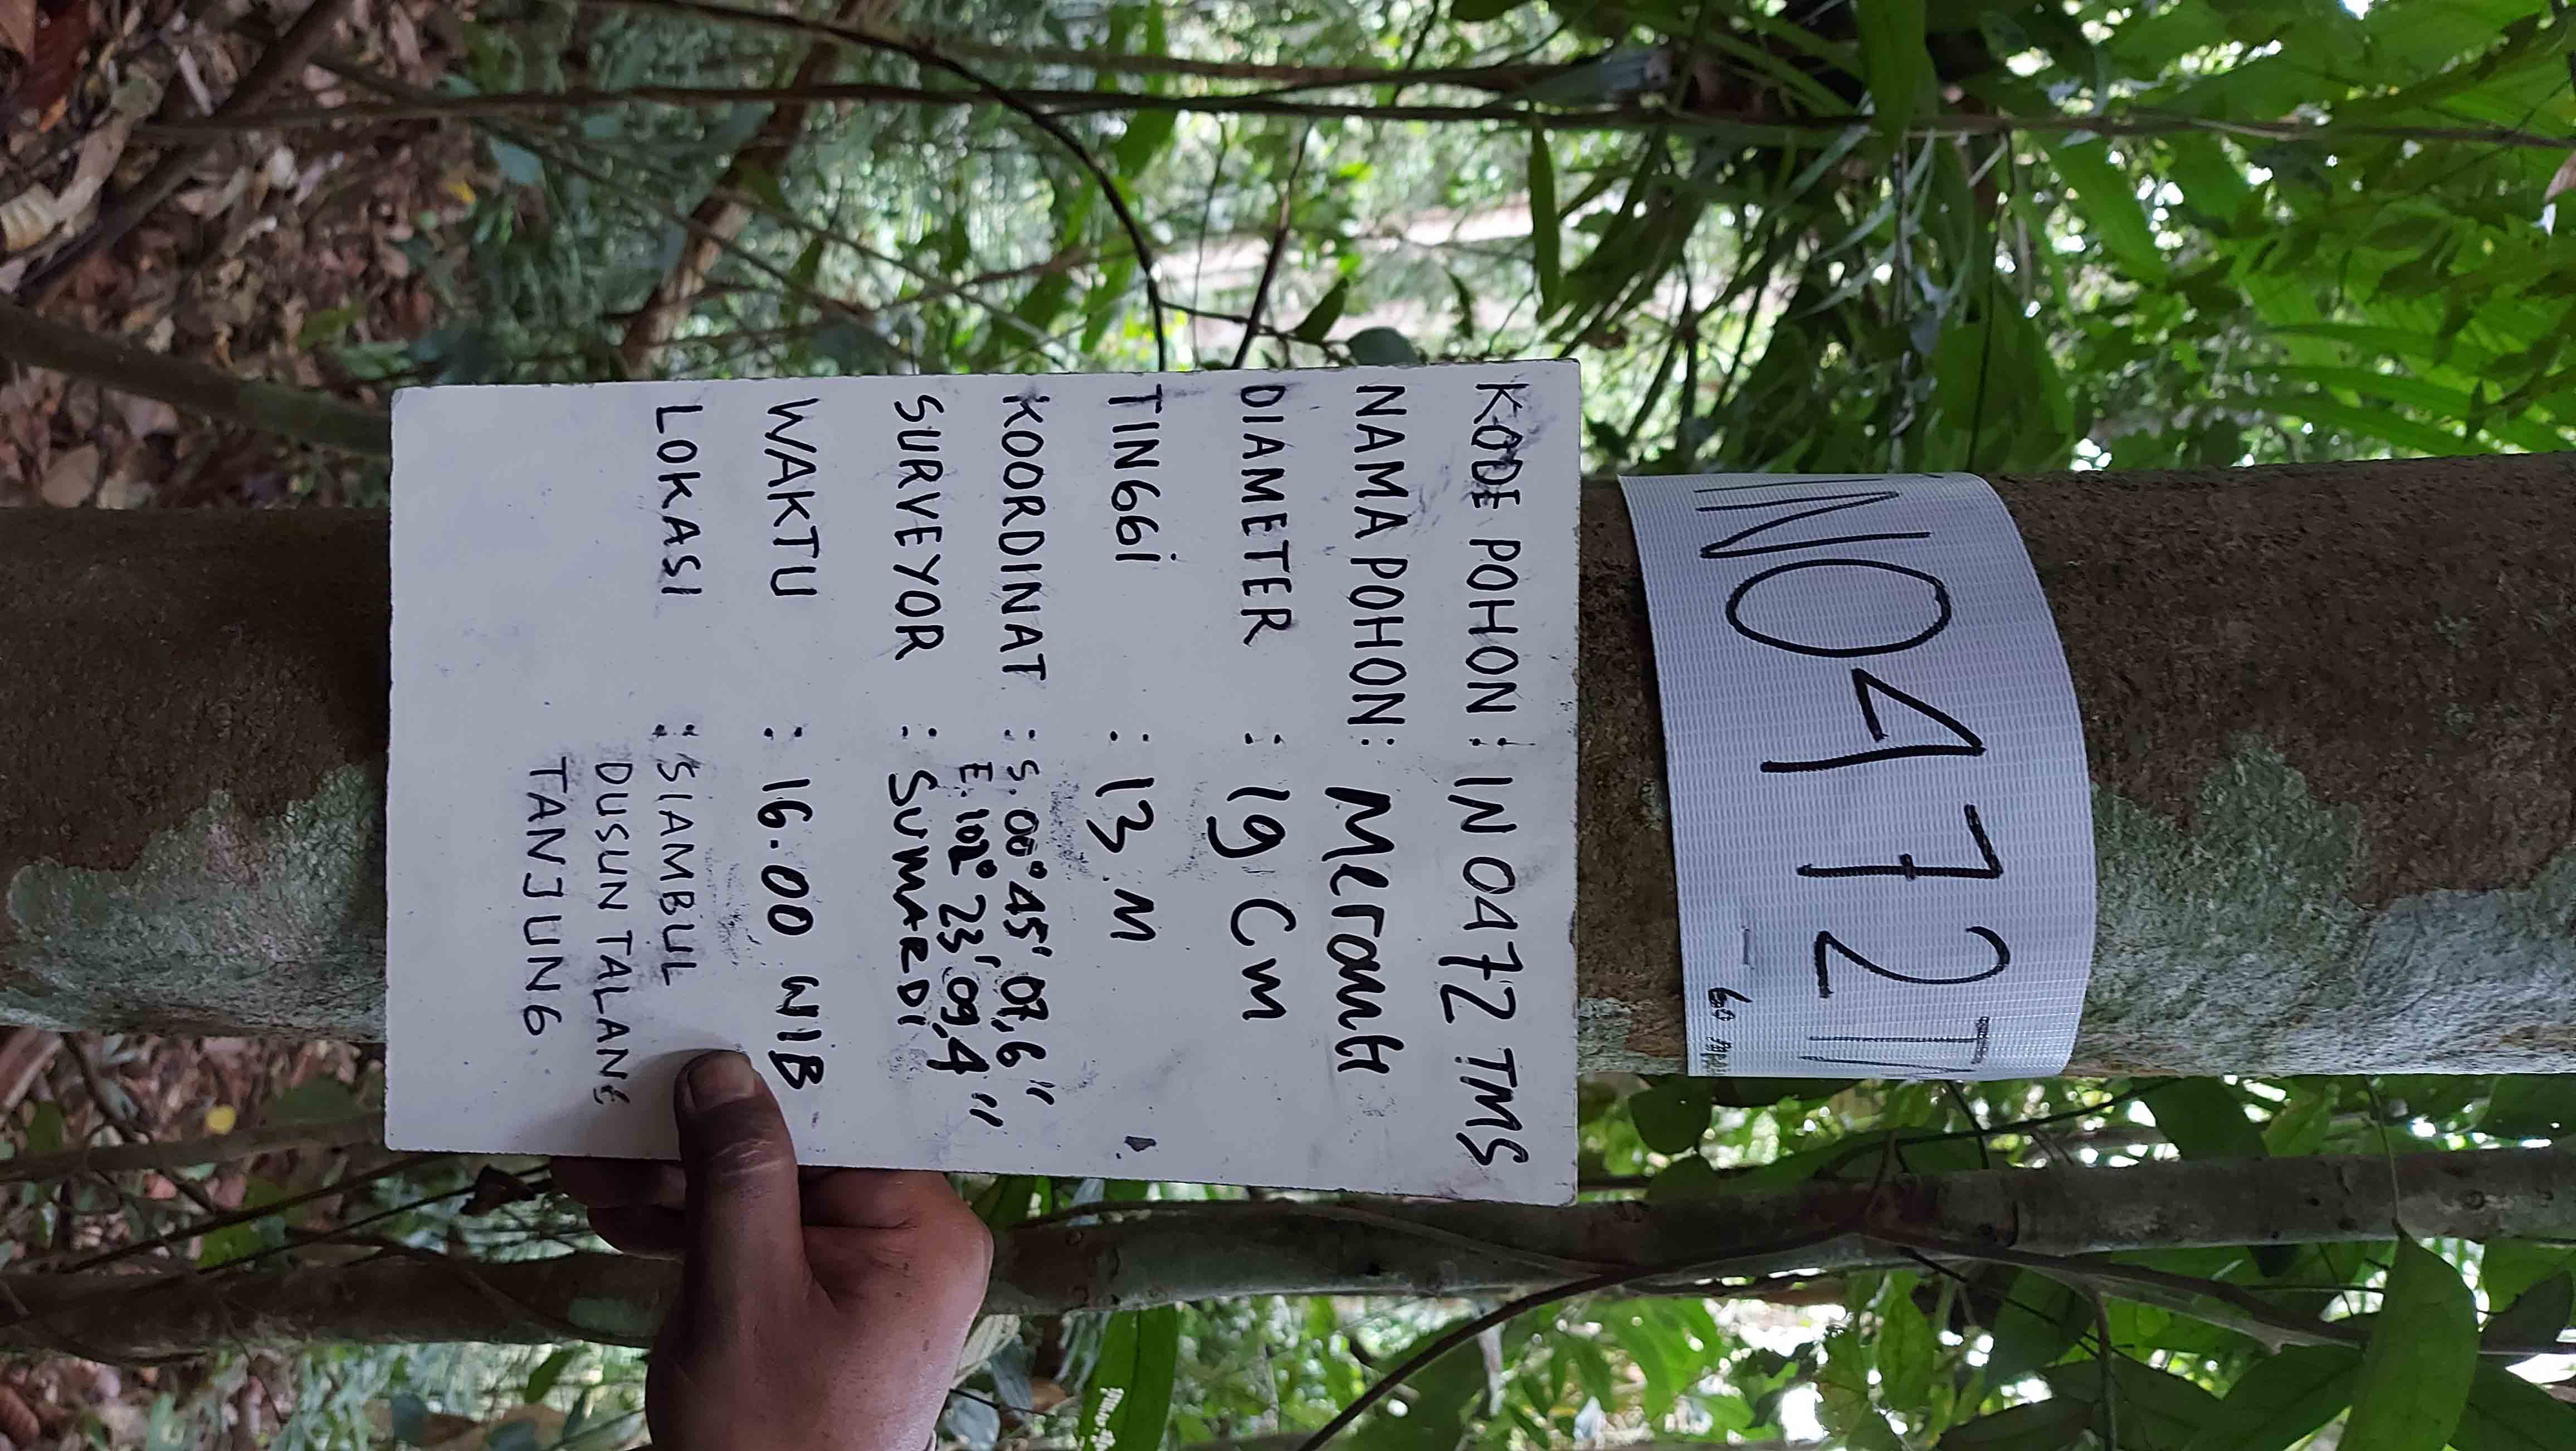 INO472TM
KODE POHON : IN 0472 TMS
NAMA POHON: Meranti
DIAMETER : 19 Cm
TINGGI : 13 M
KOORDINAT : S. 00° 45' 07,6"
E. 102° 23' 09,4"
SURVEYOR : SUMAEDI
WAKTU : 16.00 WIB
LOKASI : SIAMBUL
DUSUN TALANG
TANJUNG